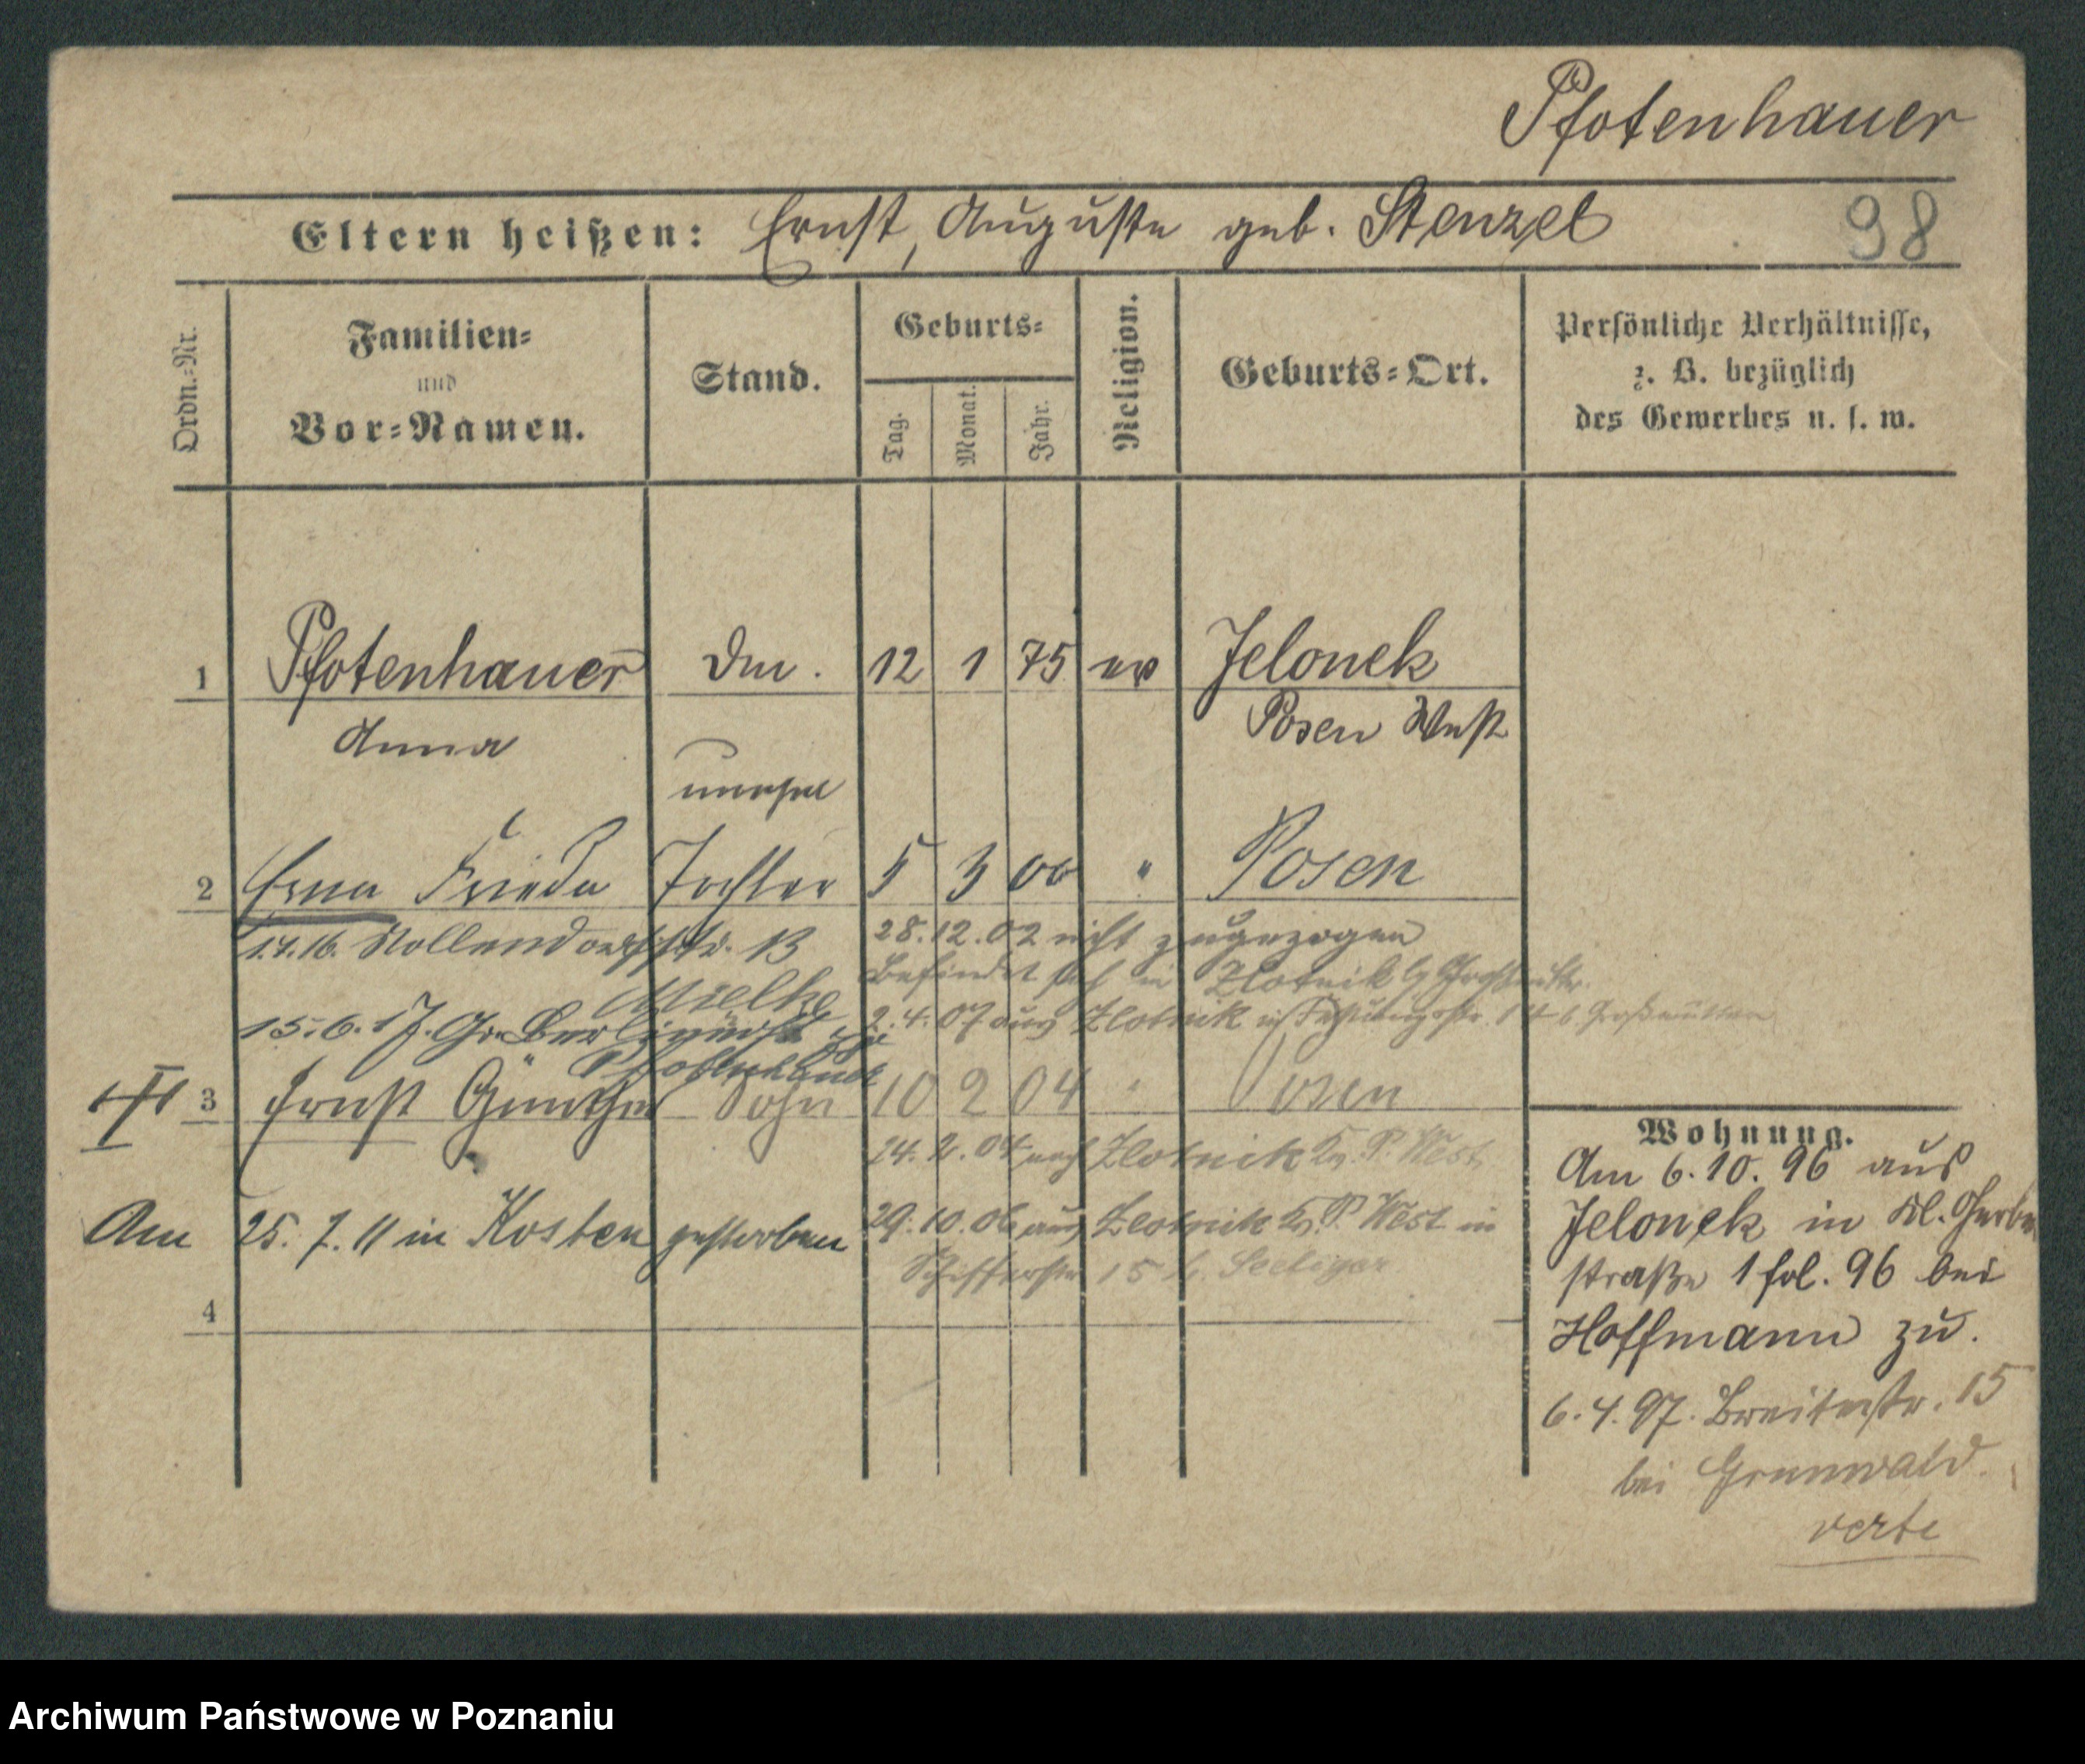 Pfotenhauer
Eltern heißen: Ernst, Auguste geb. Stenzel
98
Ordn.-Nr.
Familien-
und
Vor-Namen.
Stand.
Geburts-
Tag.
Monat.
Jahr.
Religion.
Geburts-Ort.
Persönliche Verhältnisse,
z. B. bezüglich
des Gewerbes u. s. w.
1 Pfotenhauer 12 1 75 ev Jelonek
Anna Posen West
unehel
2 Erna Frieda Tochter 5 3 00 " Posen
28.12.02 nicht zugezogen
Befindet sich in Zlotnik b/
Mielke
15.6.17. Gr. Berlinerstr.
2.4.07 aus Zlotnik
Pfotenhauer
3 Ernst Günther Sohn 10 2 04 " Posen
24.2.04 nach Zlotnik Kr. P. West
Am 25.7.11 in Kosten gestorben
29.10.06 aus Zlotnik Kr. P. West in
Schifferstr 15 b. Seeliger
4
Wohnung.
Am 6.10.96 aus
Jelonek in Kl. Gerber
straße 1 fol. 96 bei
Hoffmann zu.
6.4.97. Breitestr. 15
bei Grunwald.
verte
Archiwum Państwowe w Poznaniu